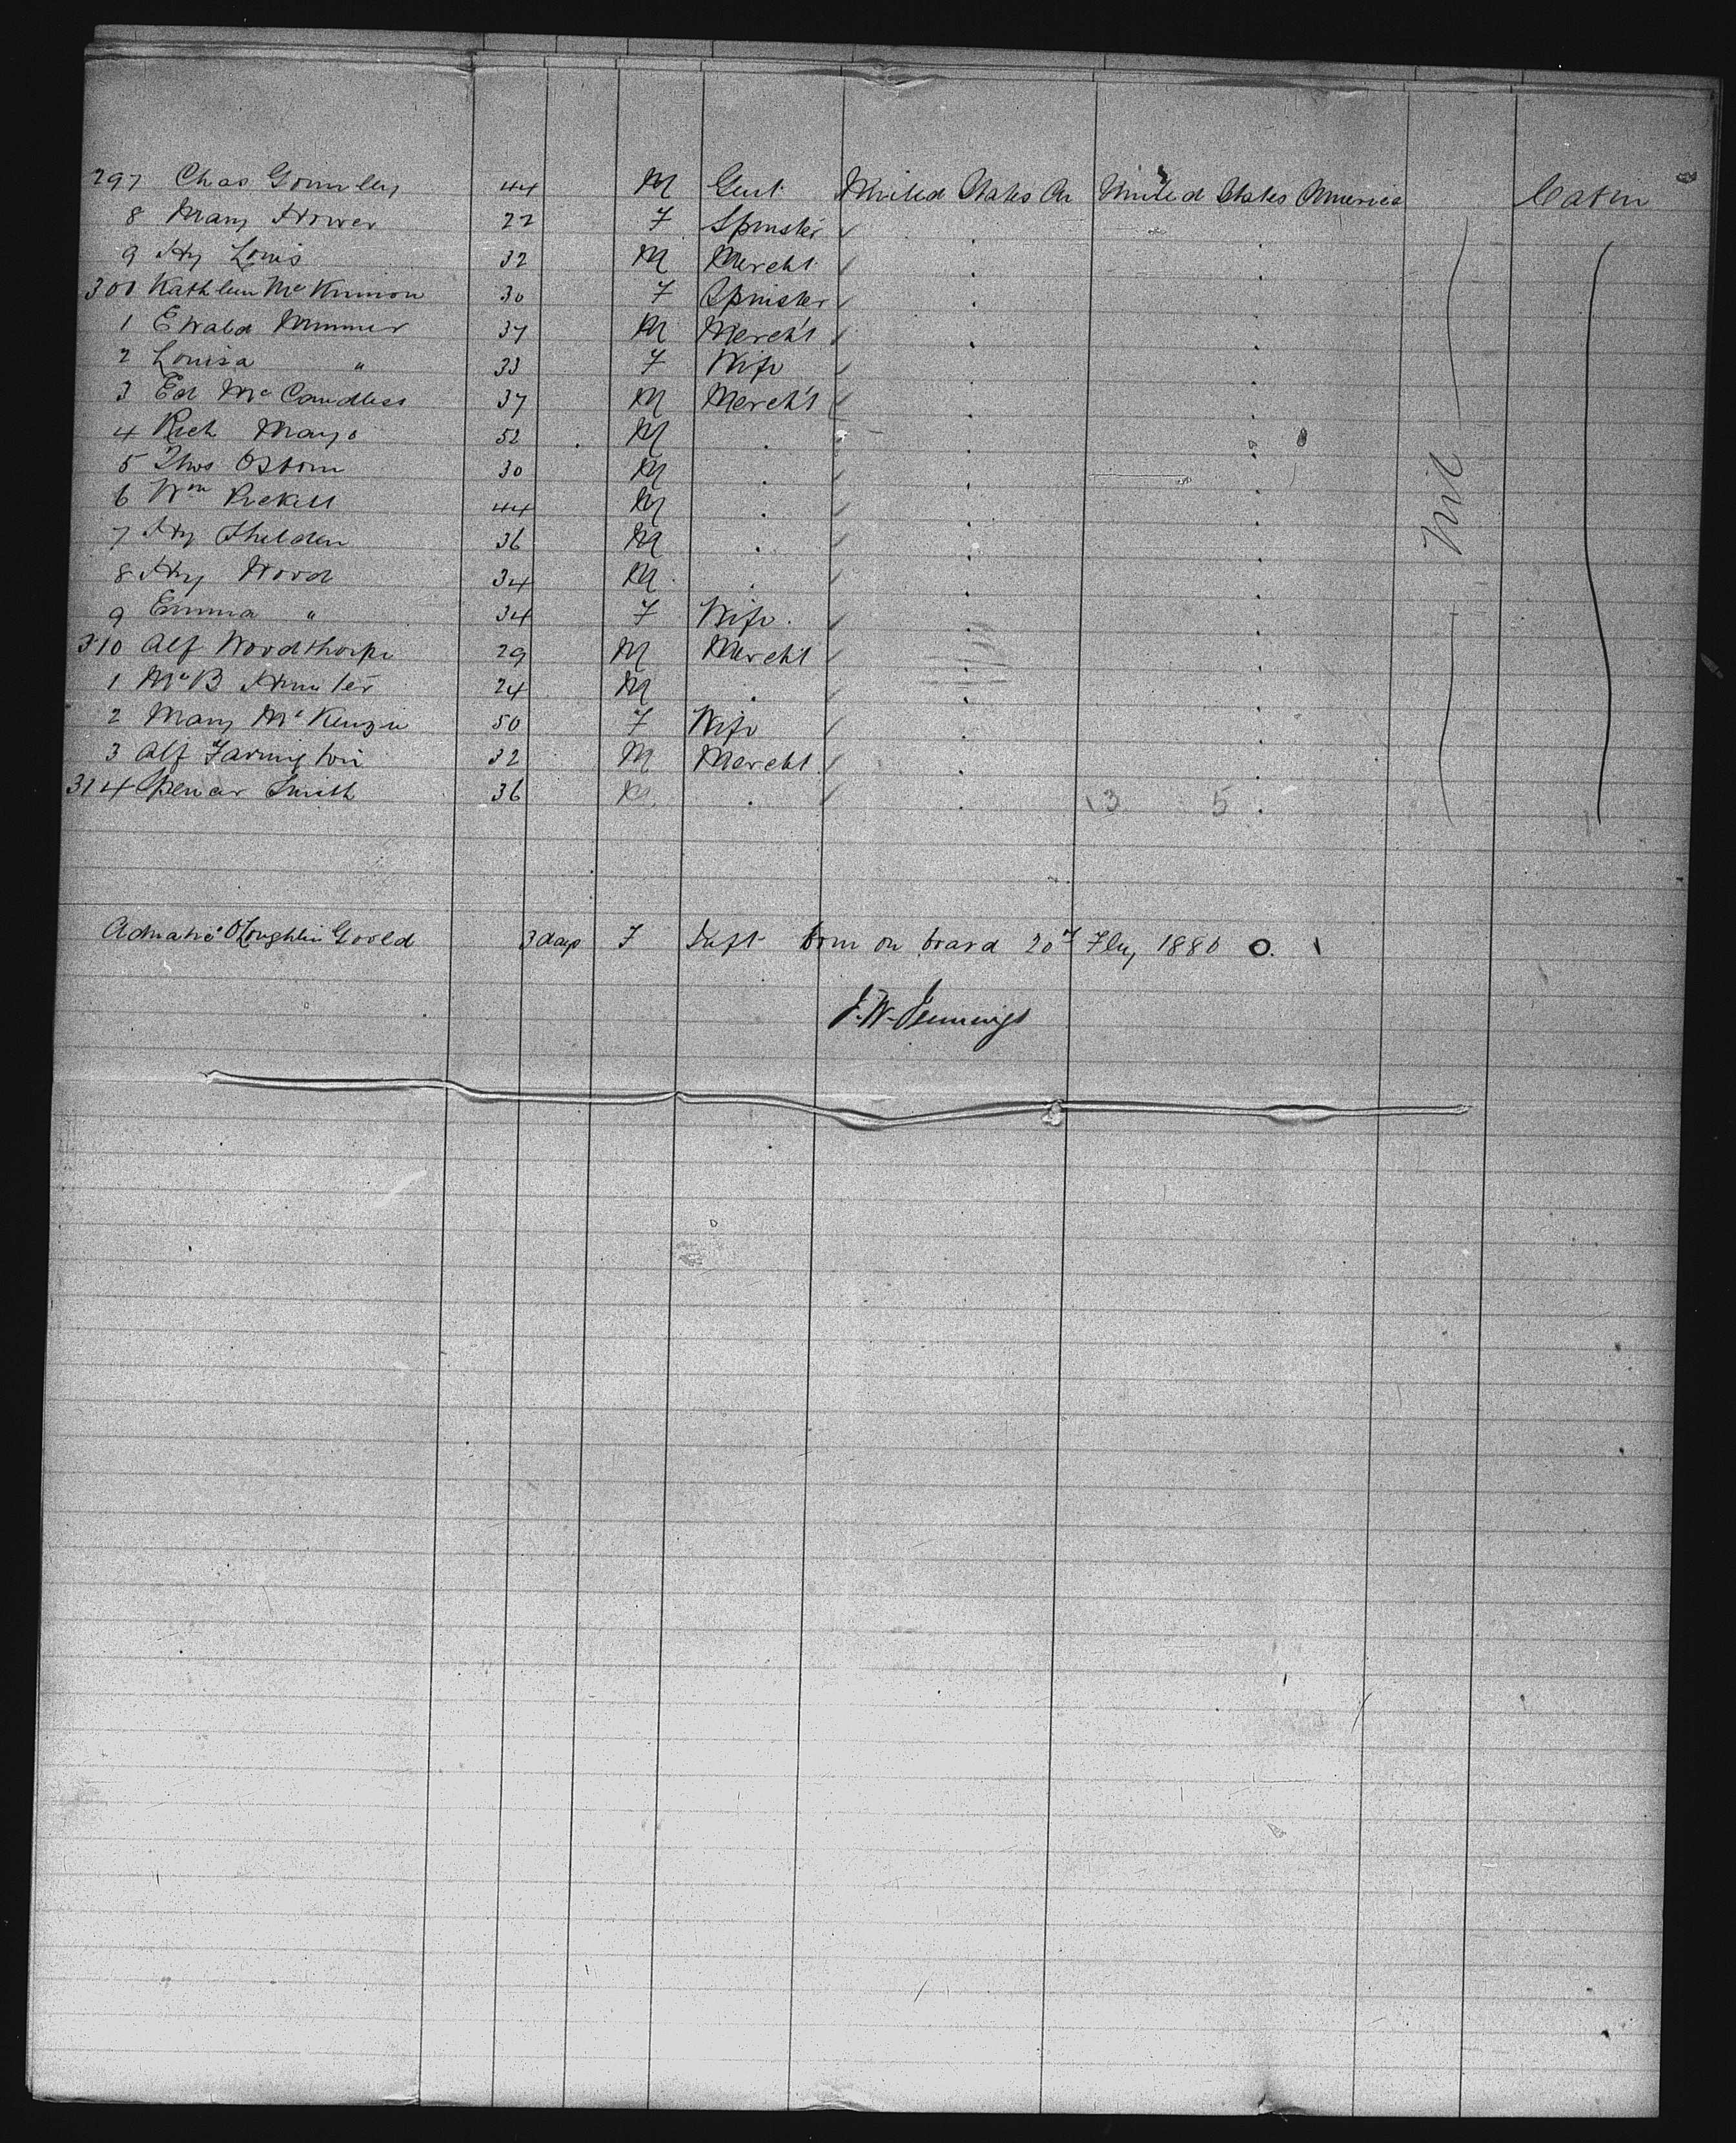 297 Chas Gormley 44 M Gent United States Am United States America Cabin
8 Mary Hower 22 F Spinster
9 Hy Louis 32 M Mercht
300 Kathleen McKinnon 30 F Spinster
1 Ewald 37 M Mercht
2 Louisa " 33 F Wife
3 Ed McCandless 37 M Mercht
4 Rich Mayo 52 M
5 Thos Osborn 30 M Nil
6 Wm Pickell 44 M
7 Hy Shelden 36 M
8 Hy Wood 34 M
9 Emma " 34 F Wife
310 Alf Woodthorpe 29 M Mercht
1 McB Hunter 24 M
2 Mary McKenzie 50 F Wife
3 Alf Farmington 32 M Mercht
314 Spencer Smith 36 M 13 5
Adriatic O'Loughlin Goold 3 days F Inft born on board 20th Feby 1880 O. 1
J. W. Jennings